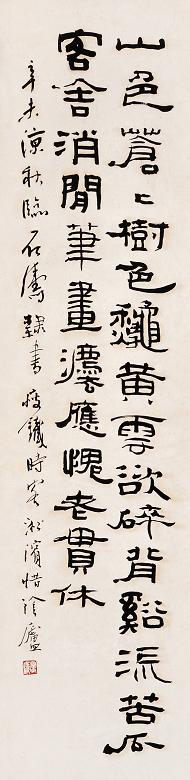 山色蒼〻樹色龝黄雲欲碎背谿流苦瓜
客舍消閒筆畫瀍應愧老貫休
辛未涼秋臨石濤隸書 瘦鐵時客淞濱惜陰廬